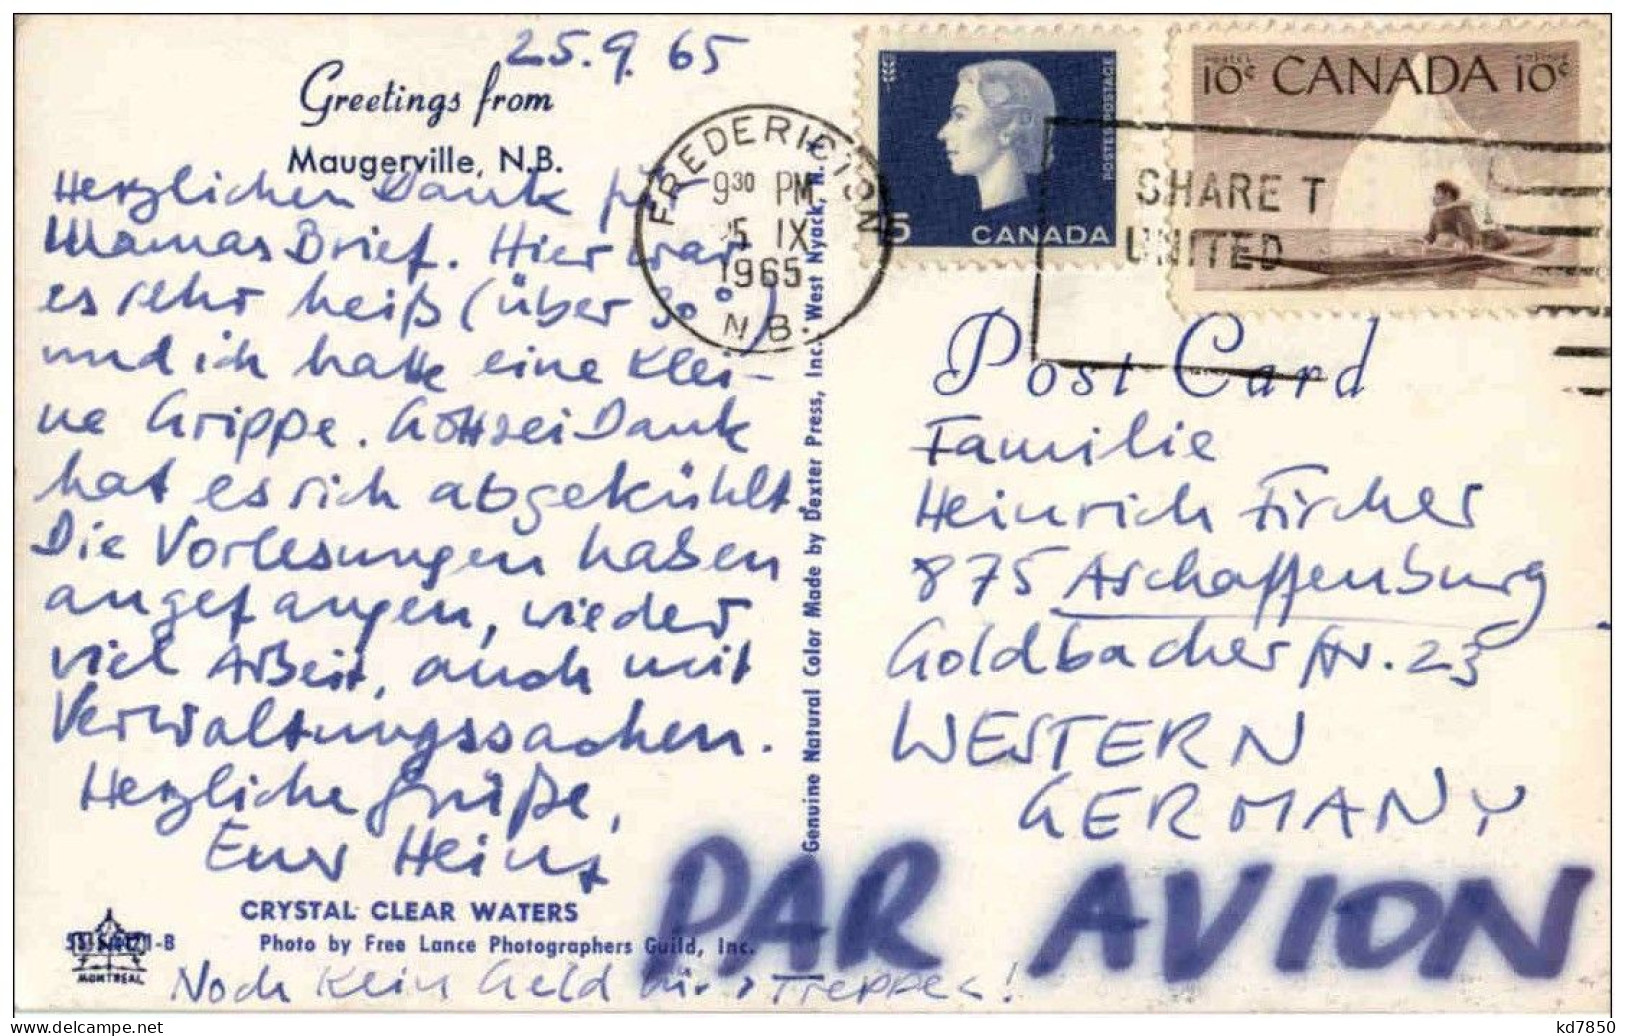 25.9.65
Greetings from
Maugerville, N.B.
Herzlichen Dank für
Mamas Brief. Hier war
es sehr heiß (über 30°)
und ich hatte eine klei-
ne Grippe. Gottsei Dank
hat es sich abgekühlt.
Die Vorlesungen haben
angefangen, wieder
viel Arbeit, auch mit
Verwaltungssachen.
Herzliche Grüße,
Euer Heinz
CRYSTAL CLEAR WATERS
Photo by Free Lance Photographers Guild, Inc.
MONTREAL
Noch kein Geld
Treppe
Genuine Natural Color Made by Dexter Press, Inc. West Nyack, N.Y.
FREDERICTON
9 30 PM
25 IX
1965
N B
5
CANADA
POSTES POSTAGE
10¢ CANADA 10¢
SHARE T
UNITED
Post Card
Familie
Heinrich Fischer
875 Aschaffenburg
Goldbacher Str. 23
WESTERN
GERMANY
PAR AVION
kd7850